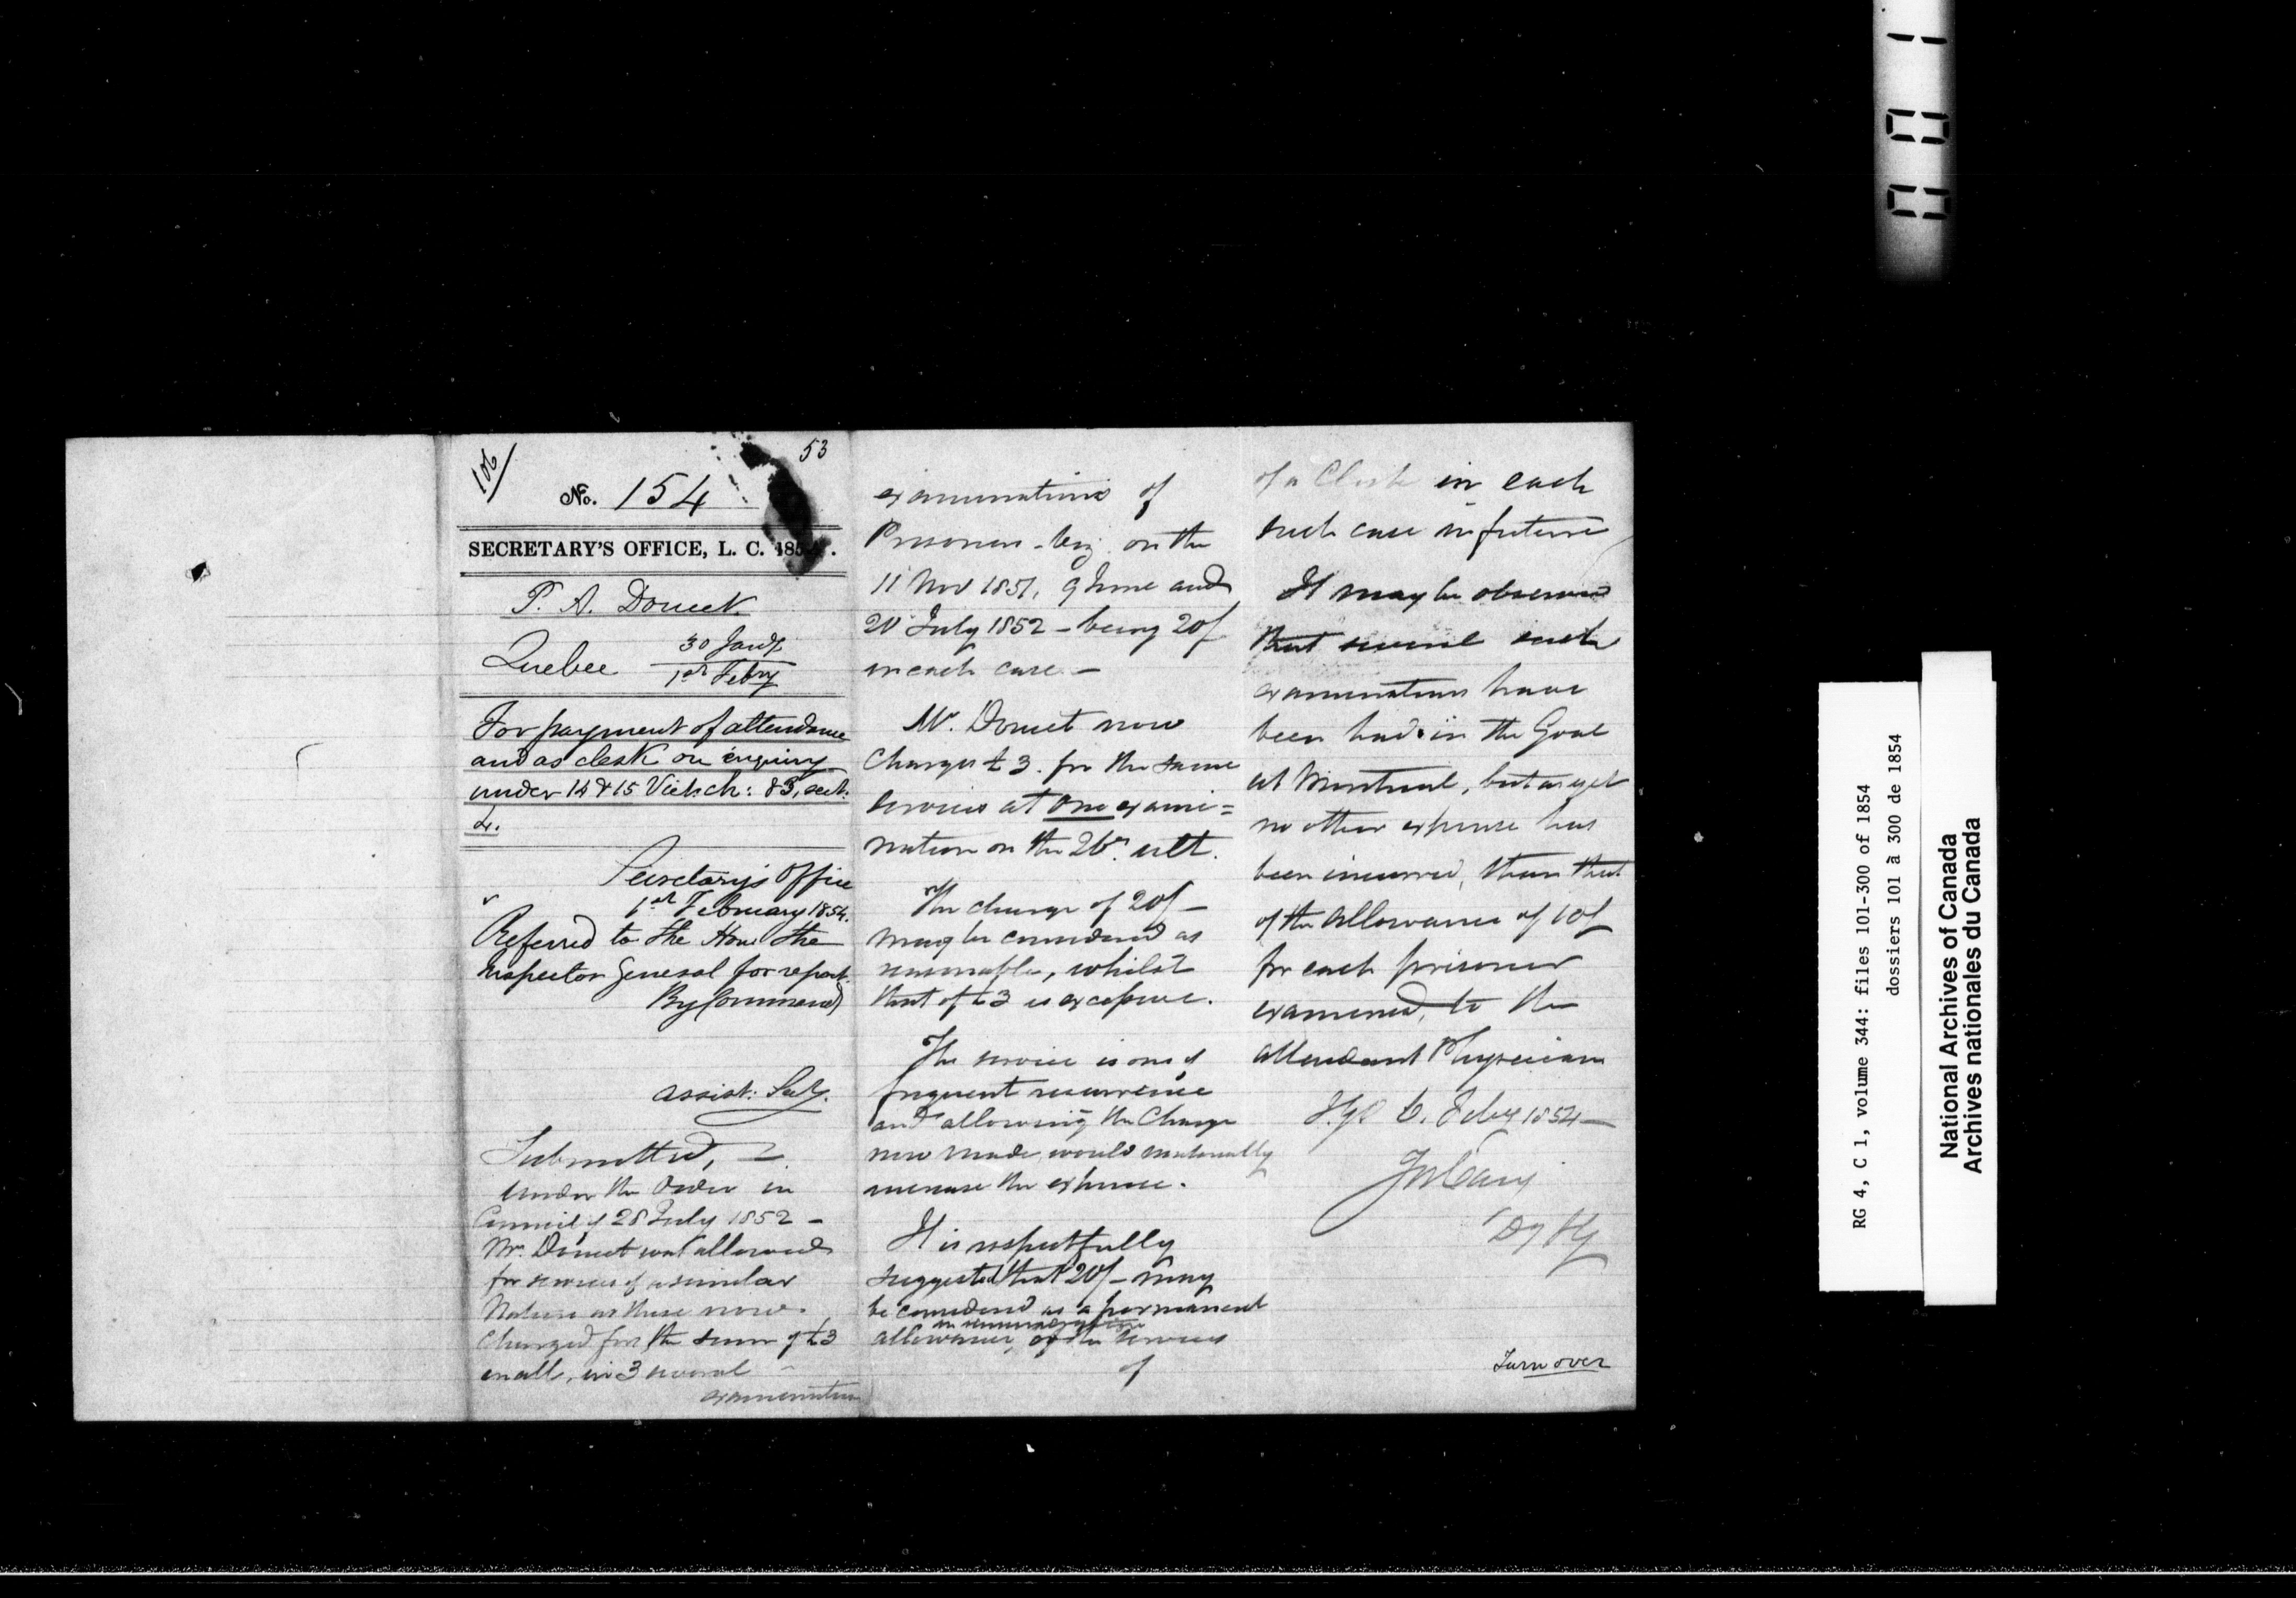 106
53
No. 154
SECRETARY'S OFFICE, L. C. 185
P. A. Doucet
Quebec 30 Jany
1st Feby
For payment of attendance
and as clerk on enquiry
under 14 & 15 Vict. ch: 83, sect:
2.
Secretary's Office
1st February 1854.
Referred to the Hon. the
Inspector General for report.
By Command
assist: Secy.
Submitted,
Under the Order in
Council of 28 July 1852 –
Mr. Doucet was allowed
for services of a similar
Nature as those now
Charged for, the sum of £3
in all, in 3 several
examinations
examinations of
Prisoners – viz. on the
11 Nov 1851, 9 June and
20 July 1852 – being 20/
in each case –
Mr. Doucet now
Charges £3. for the same
services at one exami=
nation on the 26th ult.
The charge of 20/ –
may be considered as
reasonable, whilst
that of £3 is excessive.
The service is one of
frequent recurrence
and allowing the Charge
now made, would materially
increase the expense.
It is respectfully
suggested that 20/ – may
be considered as a permanent
as remuneration
allowance, of the services
of
of a Clerk in each
such case in future
It may be observed
that several such
examinations have
been had in the Goal
at Montreal, but as yet
no other expense has
been incurred, than that
of the allowance of 10/
for each prisoner
examined, to the
attendant Physician
I.G.O 6. Feby 1854 –
Jos Cary
DyIG
Turn over
RG 4, C 1, volume 344: files 101-300 of 1854
dossiers 101 à 300 de 1854
National Archives of Canada
Archives nationales du Canada